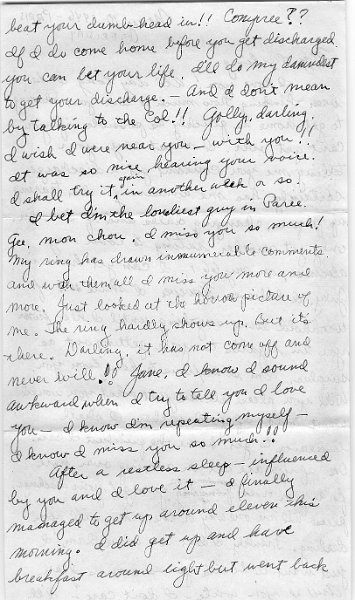 beat your dumb head in!! Compree??
If I do come home before you get discharged
you can bet your life. I'll do my damndest
to get your discharge. — And I don't mean
by talking to the Col!! Golly, darling,
I wish I were near you — with you!!
It was so nice hearing your voice.
I shall try it again in another week or so.
I bet I'm the loneliest guy in Paree.
Gee, mon chou, I miss you so much!
My ring has drawn innumerable comments
and with them all I miss you more and
more. Just looked at the horror picture of
me. The ring hardly shows up. But it's
there. Darling, it has not come off and
never will!! Jane, I know I sound
awkward when I try to tell you I love
you — I know I'm repeating myself —
I know I miss you so much!!
After a restless sleep — influenced
by you and I love it — I finally
managed to get up around eleven this
morning. I did get up and have
breakfast around eight but went back